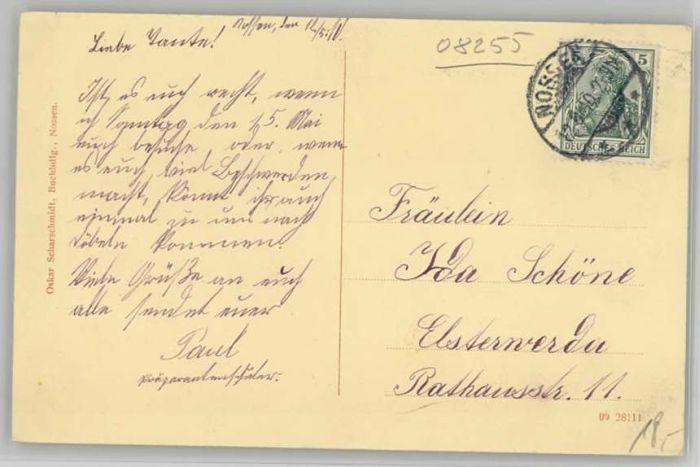 Nossen, den 12/5. 10.
Liebe Tante!
Ist es euch recht, wenn
ich Sonntag den 15. Mai
euch besuche, oder wenn
es euch viel Beschwerden
macht, könnt ihr auch
einmal zu uns nach
Döbeln kommen.
Viele Grüße an euch
alle sendet euer
Paul
Präparandenschüler.
Oskar Scharschmidt, Buchhdlg., Nossen.
08255
NOSSEN
5
DEUTSCHES REICH
Fräulein
Ida Schöne
Elsterwerda
Rathausstr. 11.
09 28111
18,-